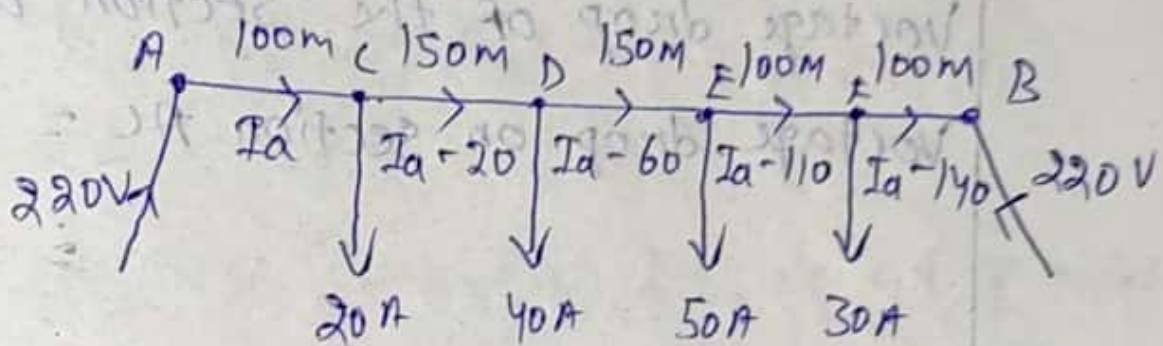 A 100m C 150m D 150m E 100m F 100m B
Ia Ia-20 Ia-60 Ia-110 Ia-140
220V 220V
20A 40A 50A 30A